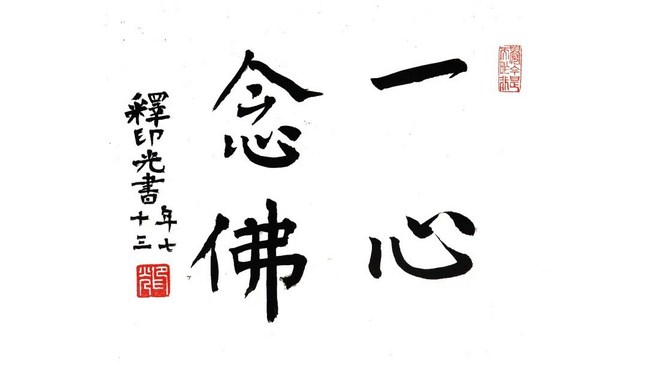 一心
念佛
釋印光書
年七
十三
印光